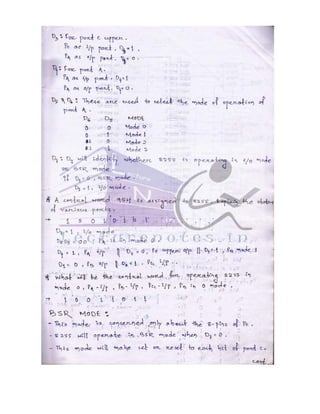 D3 : For port c upper.
Pc as i/p port, D3=1.
PA as o/p port, D3=0.
D4 : For port A.
PA as i/p port, D4=1
PA as o/p port, D4=0.
D5 & D6 : These are used to select the mode of operation of
port A.
D6 D5 MODE
0 0 Mode 0
0 1 Mode 1
1 0 Mode 2
1 Mode 2
D7 : D7 will identify whether 8255 is operating in I/O mode
or BSR mode
If D7=0, BSR mode
D7=1, I/O mode.
A control word 95H is assigned to 8255. Explain the status
of various ports.
→ 1 0 0 1 0 1 0 1
D7=1, I/O mode
D6D5=00, PA in mode 0.
D4=1, PA i/p || D3=0, Pc upper o/p || D2=1, PB mode 1
D1=0, PB o/p || D0=1, Pc i/p
What will be the control word for operating 8255 in
mode 0, PA-i/p, PB-i/p, Pc-i/p, PB in 0 mode.
→ 1 0 0 1 1 0 1 1
BSR MODE :
- This mode is concerned only about the 8-pins of Pc.
- 8255 will operate in BSR mode when D7=0.
- This mode will make set or reset to each bit of port c.
cont